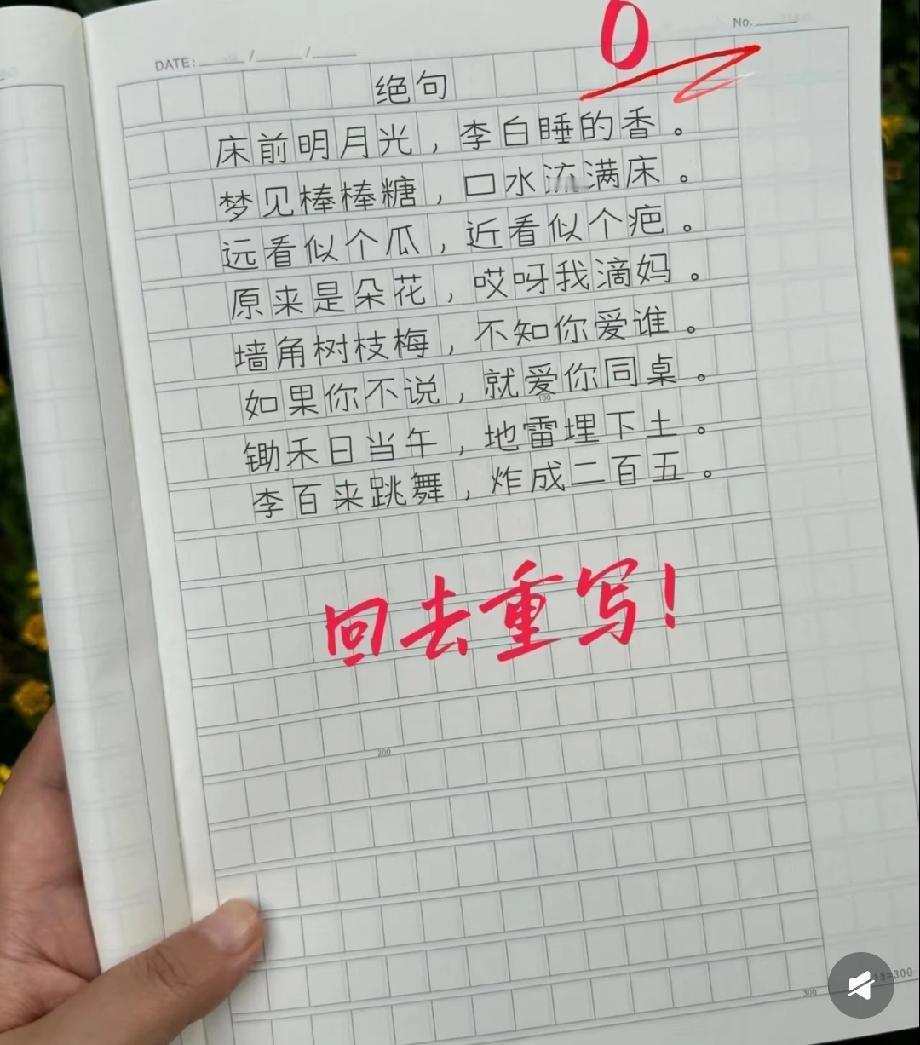 No.
0
DATE: / /
绝句
床前明月光，李白睡的香。
梦见棒棒糖，口水流满床。
远看似个瓜，近看似个疤。
原来是朵花，哎呀我滴妈。
墙角树枝梅，不知你爱谁。
如果你不说，就爱你同桌。
100
锄禾日当午，地雷埋下土。
李百来跳舞，炸成二百五。
回去重写！
200
300
=300